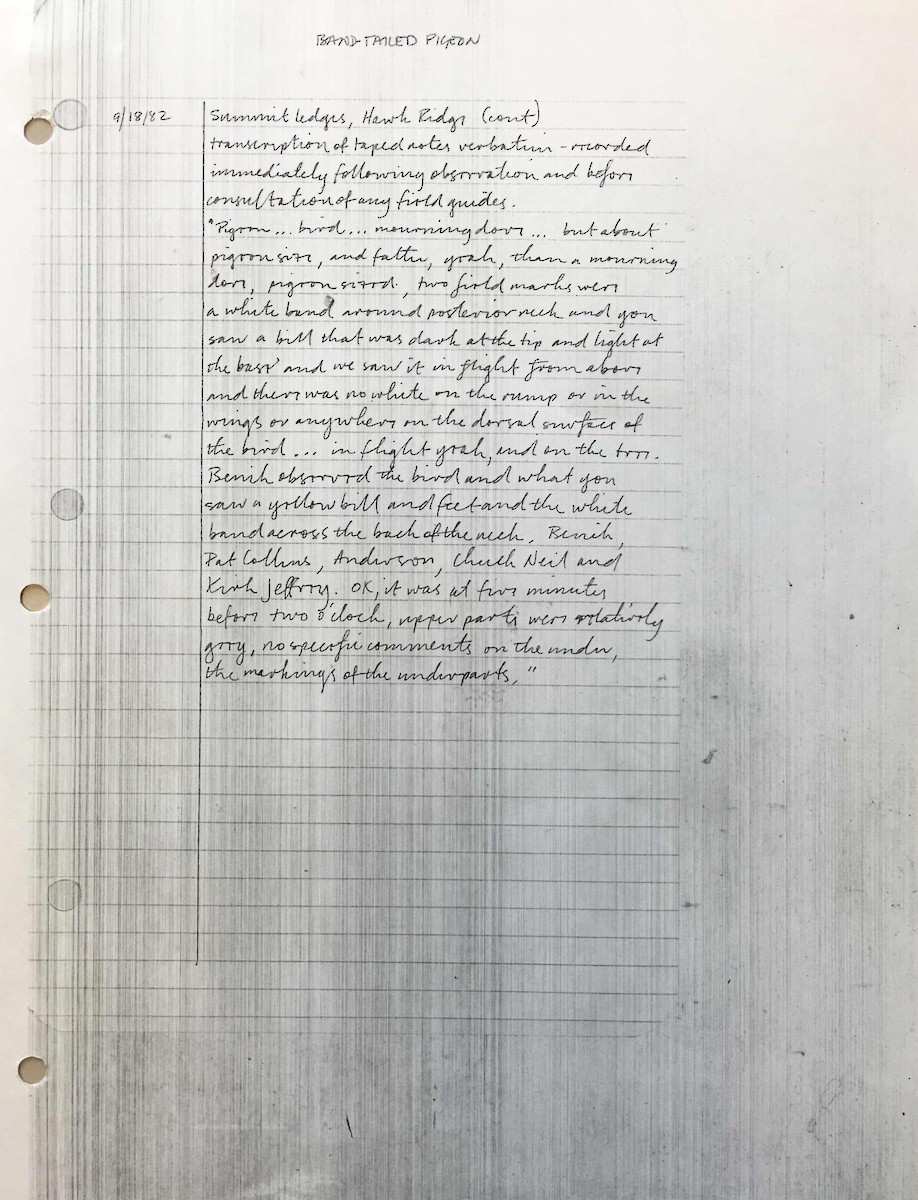 BAND-TAILED PIGEON
9/18/82 Summit ledges, Hawk Ridge (cont)
transcription of taped notes verbatim - recorded
immediately following observation and before
consultation of any field guides.
"Pigeon ... bird ... mourning dove ... but about
pigeon size, and fatter, yeah, than a mourning
dove, pigeon sized, two field marks were
a white band around posterior neck and you
saw a bill that was dark at the tip and light at
the base and we saw it in flight from above
and there was no white on the rump or in the
wings or anywhere on the dorsal surface of
the bird ... in flight yeah, and on the tree.
Benih observed the bird and what you
saw a yellow bill and feet and the white
band across the back of the neck. Benih,
Pat Collins, Anderson, Chuck Neil and
Kirk Jeffrey. OK, it was at five minutes
before two o'clock, upper parts were relatively
grey, no specific comments on the under,
the markings of the underparts."